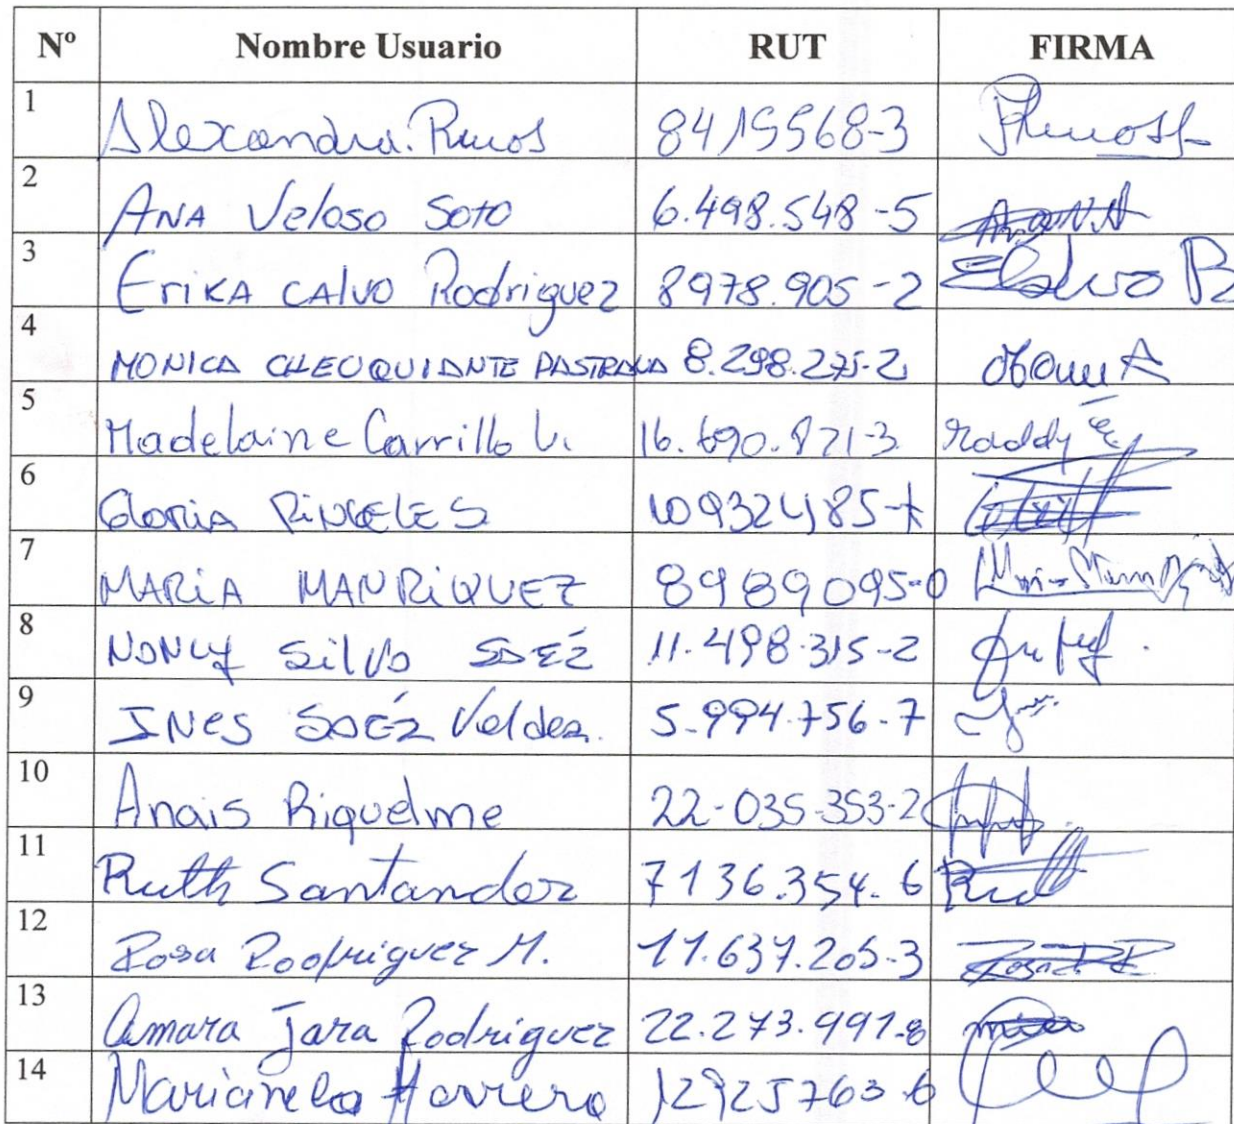 Nº Nombre Usuario RUT FIRMA
1 Alexandra. Rmos 8415568-3
2 ANA Veloso Soto 6.498.548-5
3 Erika CALVO Rodriguez 8978.905-2
4 MONICA CHEUQUIANTE PASTRANA 8.298.275-2
5 Madelaine Carrillo V. 16.690.821-3
6 Gloria RINGELES
7 MARIA MANRIQUEZ 8989095-0
8 NANCY Silva SAEZ 11.498.315-2
9 INES SAEZ Valdes 5.994.756-7
10 Anais Riquelme 22-035-353-2
11 Ruth Santander 7136.354-6
12 Rosa Rodriguez M. 11.637.205-3
13 Amara Jara Rodriguez 22.273.991-8
14 Marianela Herrera 12925763-6